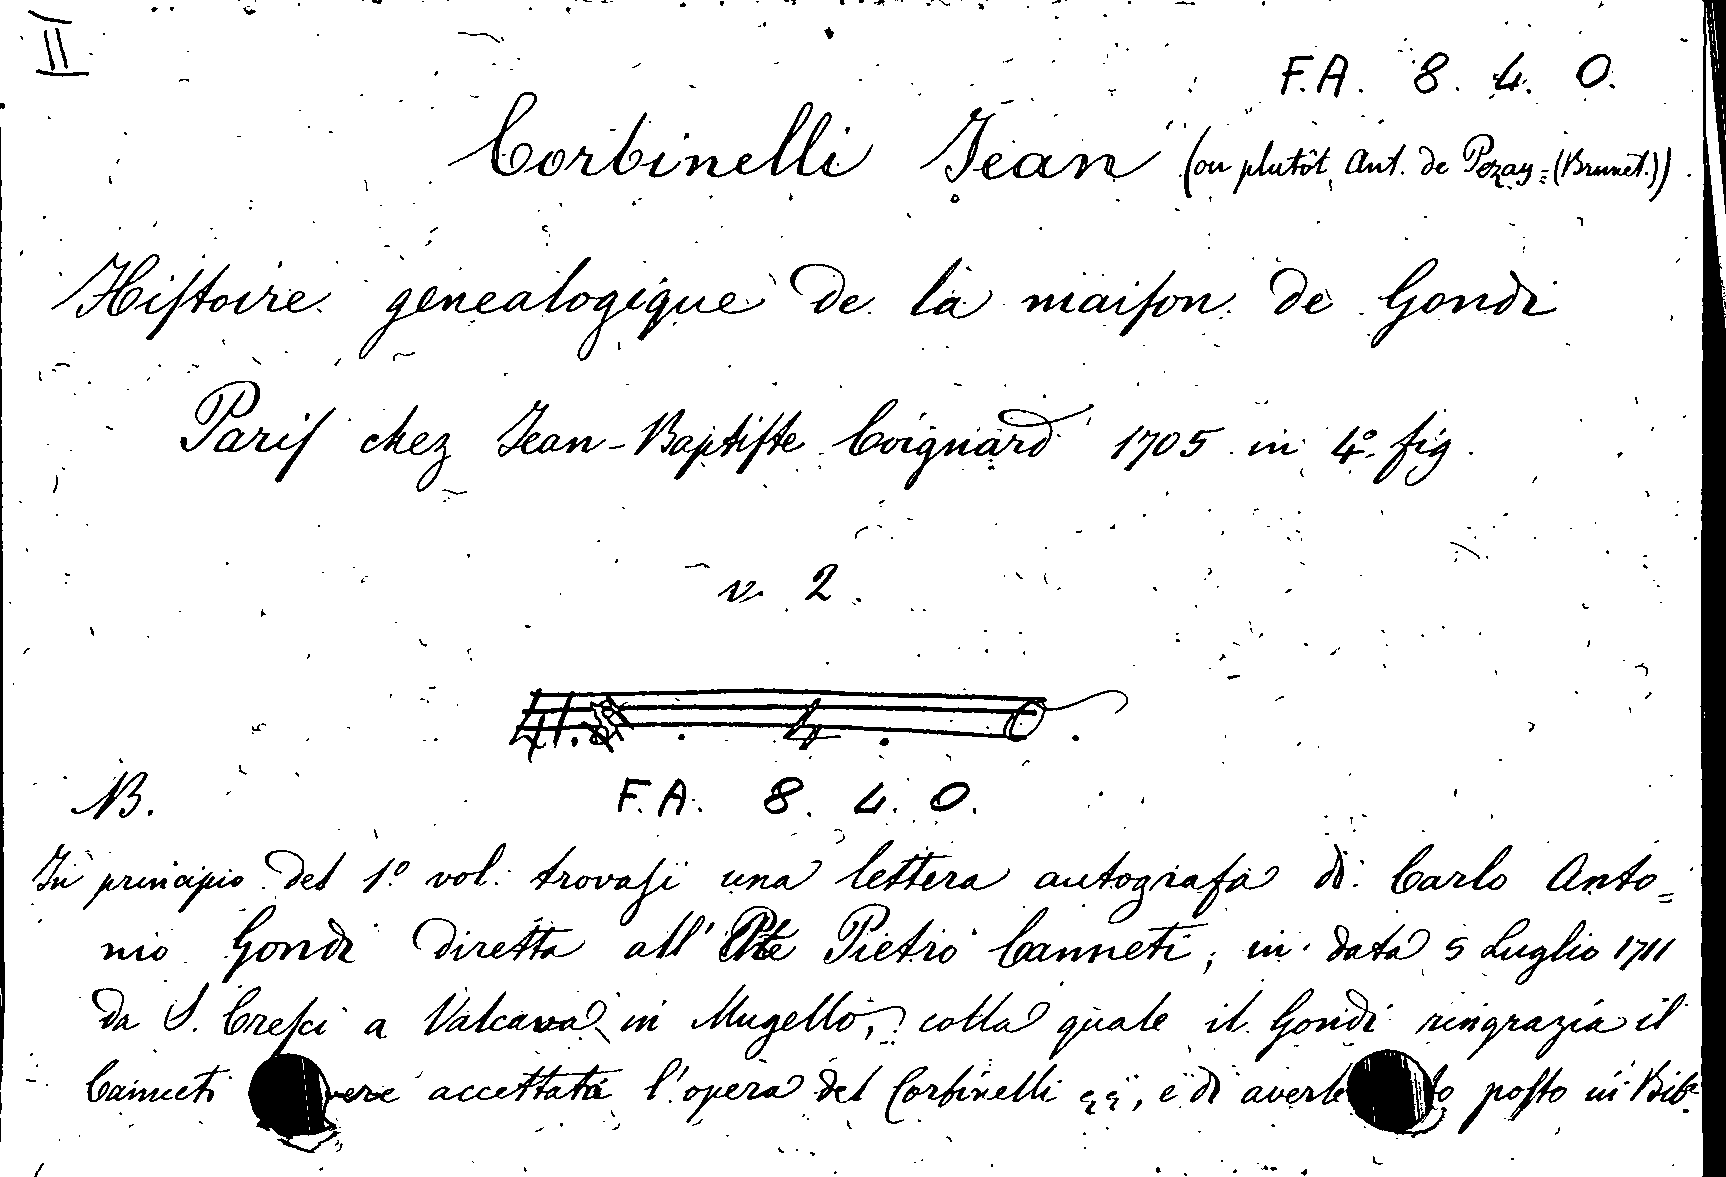 II
F.A. 8. 4. 0.
Corbinelli Jean (ou plutôt Ant. de Pezay=(Brunet.))
Hiſtoire genealogique de la maiſon de Gondi
Pariſ chez Jean-Baptiſte Coignard 1705 in 4º. fig.
v. 2.
4. 0.
NB.
F.A. 8. 4. 0.
In principio del 1º vol. trovaſi una lettera autografa di Carlo Anto=
nio Gondi diretta all' Pietro Canneti, in data 5 Luglio 1711
da S. Creſci a Valcava in Mugello, colla quale il Gondi ringrazia il
Canneti vere accettata l'opera del Corbinelli e di averle lo poſto in Bib.